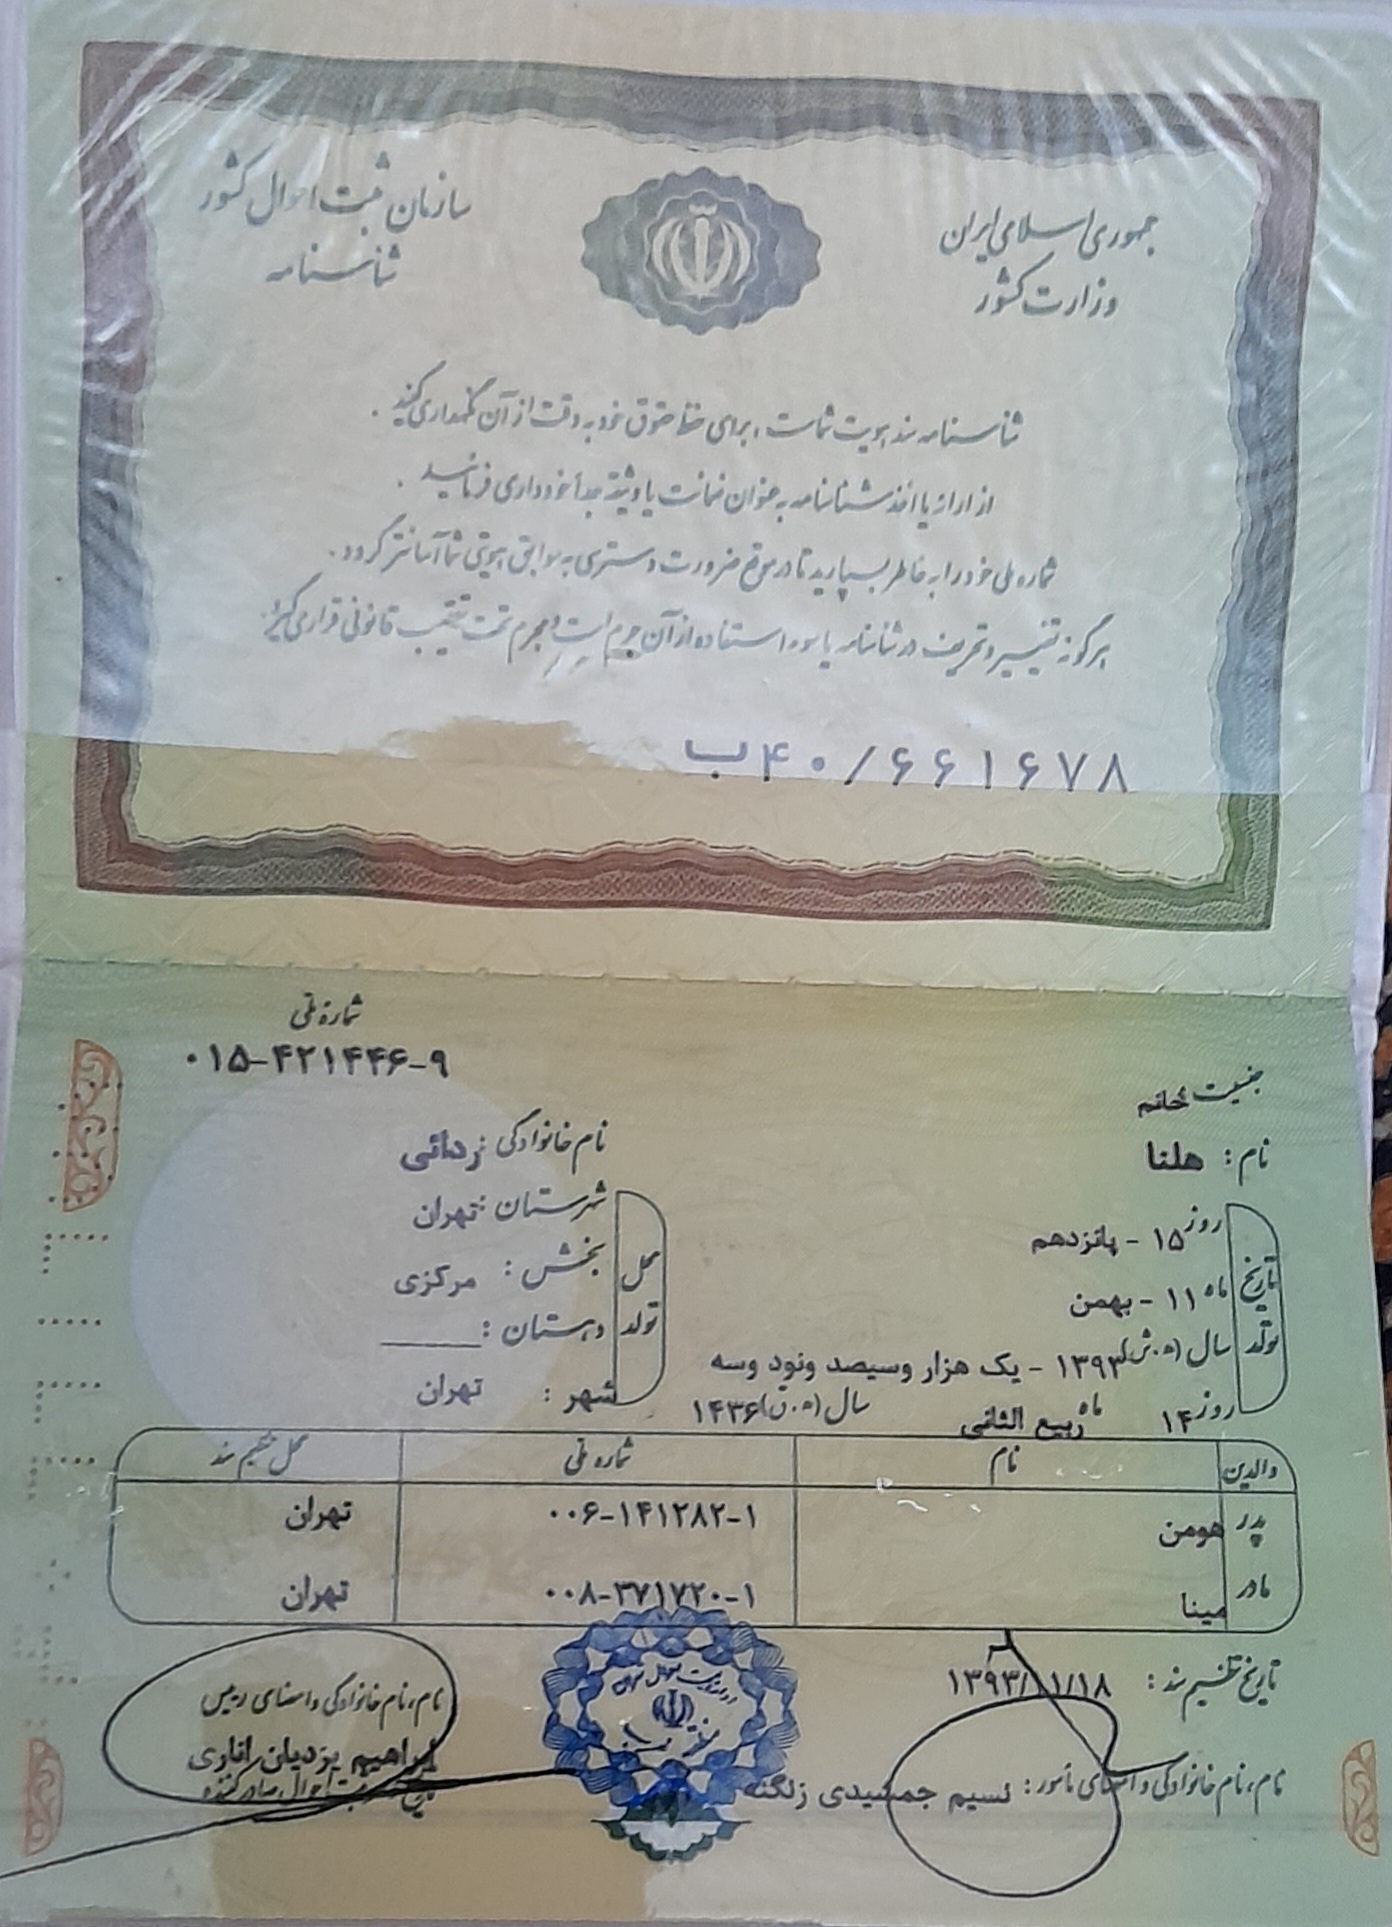 جمهوری اسلامی ایران
وزارت کشور
سازمان ثبت احوال کشور
شناسنامه
شناسنامه سند هویت شماست، برای حفظ حقوق خود به دقت از آن نگهداری کنید.
از ارائه یا اخذ شناسنامه به عنوان ضمانت یا وثیقه جداً خودداری فرمائید.
شماره ملی خود را به خاطر بسپارید تا در موقع ضرورت دسترسی به سوابق هویتی شما آسانتر گردد.
هرگونه تغییر و تحریف در شناسنامه یا سوء استفاده از آن جرم است و مجرم تحت تعقیب قانونی قرار می‌گیرد.
ب۴۰/۶۶۱۶۷۸
شماره ملی
۰۱۵-۴۲۱۴۴۶-۹
جنسیت خانم
نام: هلنا
نام خانوادگی:
تاریخ تولد
روز ۱۵ - پانزدهم
ماه ۱۱ - بهمن
سال (ه.ش) ۱۳۹۳ - یک هزار وسیصد ونود وسه
روز ۱۴ ماه ربیع الثانی سال (ه.ق) ۱۴۳۶
محل تولد
شهرستان: تهران
بخش: مرکزی
دهستان:
شهر: تهران
والدین نام شماره ملی محل تنظیم سند
پدر هومن ۰۰۶-۱۴۱۲۸۲-۱ تهران
مادر مینا ۰۰۸-۳۷۱۷۲۰-۱ تهران
تاریخ تنظیم سند: ۱۳۹۳/۱۱/۱۸
نام، نام خانوادگی و امضای مأمور: نسیم جمشیدی زنگنه
نام، نام خانوادگی و امضای رئیس
ابراهیم یزدیان اناری
ثبت احوال صادرکننده